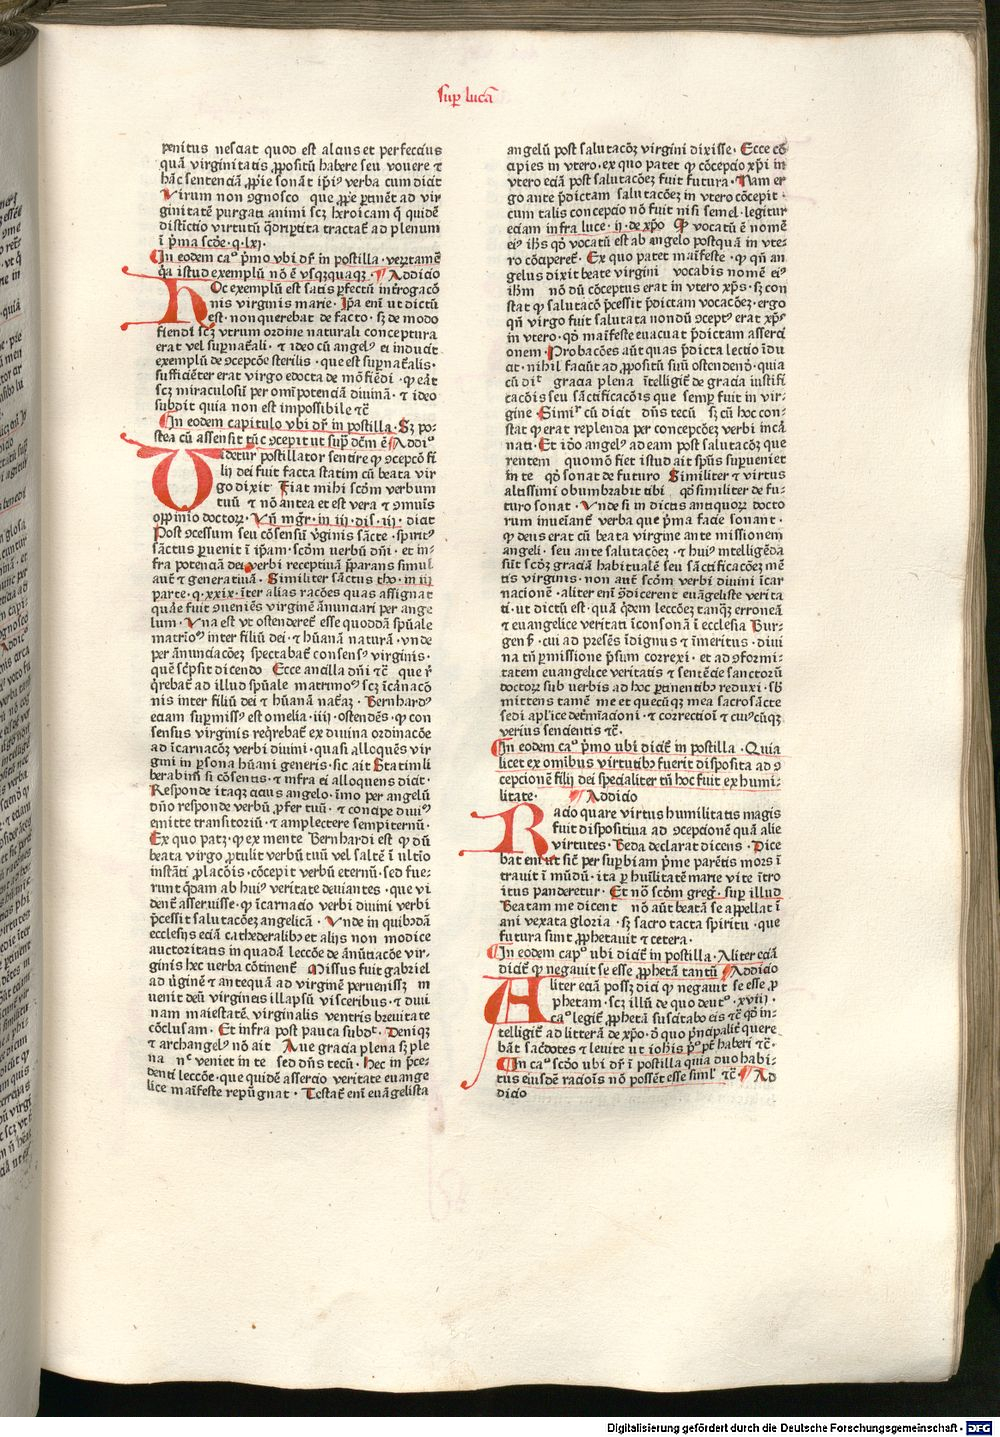 suꝑ lucā
penitus nesciat quod est alcius et perfectius
quā virginitatis ꝓpositū habere seu vouere ⁊
hāc sentenciā ꝓprie sonāt ipiꝰ verba cum dicit
Virum non ↄgnosco que ꝓprie ꝑtinēt ad vir
ginitatē purgati animi scꝫ heroicam q̄ quidē
distictio virtutū q̄driꝑtita tractaē ad plenum
ī ṗma scd̄e · q · lxi ·
In eodem caº ṗmo vbi dr̄ in postilla · verūtamē
q̄a istud exemplū nō ē vsqꝫquaqꝫ · Addicio
Hoc exemplū est satis ꝑfectū inťrogacō
nis virginis marie · Ip̄a eni̅ ut dictū
est · non querebat de facto · sꝫ de modo
fiendi scꝫ vtrum ordine naturali conceptura
erat vel suꝑnaťali · ⁊ ideo cū angelꝰ ei inducit
exemplū de ↄcepcōe sterilis · que est suꝑnaťalis ·
sufficiēter erat virgo edocta de mō fiēdi · ꝙ eāt
scꝫ miraculosū per om̄ipotenciā diuinā · ⁊ ideo
subdit quia non est impossibile ⁊c̄
In eodem capitulo vbi dr̄ in postilla · Sꝫ po-
stea cū assensit tūc ↄcepit ut supᵃ dc̄m ē Addiº
Videtur postillator sentire ꝙ ↄcepcō fi
lij dei fuit facta statim cū beata vir
go dixit Fiat mihi scd̄m verbum
tuū ⁊ nō antea et est vera ⁊ ↄmuis
oppinio doctorꝝ · Vn̄ mgr̄ · in iij · dis · iij · dicit
Post ↄcessum seu cōsensū v̇ginis sācte · spiritꝰ
sāctus ꝑuenit ī ip̄am · scd̄m verbū dn̄i · et in-
fra potenciā dei verbi receptiuā ꝑparans simul
autē ⁊ generatiuā · Similiter sāctus tho · in iij
parte · q · xxix · iter alias racōes quas assignat
quāe fuit ↄueniēs virginē ānunciari per ange
lum · Vna est vt ostendereť esse quoddā spūale
matriōꝫ inter filiū dei · ⁊ hūanā naturā · vnde
per ānunciacōes spectabať consensꝰ virginis ·
quē sc̄psit dicendo Ecce ancilla dn̄i ⁊c̄ que ṙ
q̇rebať ad illud spūale matrimoꝰ scꝫ icānacō
nis inter filiū dei ⁊ hūanā naťaꝫ · Bernhardꝰ
eciam suꝑmissꝰ est omelia · iiij · ostendēs · ꝙ con
sensus virginis req̇rebať ex diuina ordinacōe
ad īcarnacōꝫ verbi diuini · quasi alloquēs vir
gini in ꝑsona hūani generis · sic ait Statim li
berabim̄ si cōsentis · ⁊ infra ei alloquens dicit ·
Responde itaqꝫ cicius angelo · īmo per angelū
dn̄o responde verbū ꝓfer tuū · ⁊ concipe diuiꝰ
emitte transitoriū · ⁊ amplectere sempiternū ·
Ex quo patꝫ · ꝙ ex mente Bernhardi est ꝙ dū
beata virgo ꝓtulit verbū tuū vel saltē ī vltīo
instāti ꝓlacōis · cōcepit verbū eternū · sed fue-
runt q̇dam ab huiꝰ veritate deuiantes · que vi
denť asseruisse · ꝙ īcarnacio verbi diuini verbi
ṗcessit salutacōeꝫ angelicā · Vnde in quibꝯdā
ecclesijs eciā cathederalibꝯ et alijs non modice
auctoritatis in quadā leccōe de ānūtiacōe vir-
ginis hec verba cōtinenť Missus fuit gabriel
ad v̇ginē ⁊ antequā ad virginē peruenissꝫ in
uenit deū virgineis illapsū visceribus · ⁊ diui
nam maiestatē · virginalis ventris breuitate
cōclusam · Et infra post pauca subdᵗ · Deniqꝫ
⁊ archangelꝰ nō ait Aue gracia plena sꝫ ple
na nᶜ veniet in te sed dn̄s tecū · Hec in ṗce-
denti leccōe · que quidē assercio veritate euange
lice maīfeste repūgnat · Testať eni̅ euāgelista
angelū post salutacōꝫ virgini dixisse · Ecce cō
cipies in vtero · ex quo patet ꝙ cōcepcio xp̄i in
vtero eciā post salutacōeꝫ fuit futura · Nam er
go ante ṗdictam salutacōeꝫ in vtero cōcepit ·
cum talis concepcio nō fuit nisi semel · legitur
eciam infra luce · ij · de xp̄o ꝙ vocatū ē nomē
eiꝰ ihs̄ qd̄ vocatū est ab angelo postquā in vte-
ro cōcipereť · Ex quo patet maīfeste · ꝙ qn̄ an
gelus dixit beate virgini vocabis nomē eiꝰ
ihm̄ nō dū cōceptus erat in vtero xp̄s · sꝫ con
stat ꝙ salutacō ṗcessit ṗdictam vocacōeꝫ · ergo
qn̄ virgo fuit salutata nondū ↄceptꝰ erat xp̄s
in vtero · qd̄ maīfeste euacuat ṗdictam asserci
onem · Probacōes aūt quas ṗdicta lectio īdu
cit · nihil faciūt ad ꝓpositū suū ostendendꝰ · quia
cū diᵗ gracia plena ītelligiť de gracia iustifi
tacōis seu sāctificacōis que semꝑ fuit in vir-
gine · Similᵗ cū dicit dn̄s tecū sꝫ cū hoc con-
stat ꝙ erat replenda per concepcōeꝫ verbi incā
nati · Et idō angelꝰ ad eam post salutacōꝫ que
rentem quomō fiet istud ait spūs suꝑueniet
in te qd̄ sonat de futuro Similiter ⁊ virtus
altissimi obumbrabit tibi qd̄ similiter de fu-
turo sonat · Vnde si in dictis antiquoꝝ docto
rum inueīanť verba que ṗma facie sonant ·
ꝙ deus erat cū beata virgine ante missionem
angeli · seu ante salutacōeꝫ · ⁊ huiꝰ intelligēda
sūt scd̄ꝫ graciā habitualē seu sāctificacōeꝫ mē
tis virginis · non autē scd̄m verbi diuini īcar
nacionē · aliter eni̅ ↄ̇dicerent euāgeliste verita
ti · ut dictū est · quā q̇dem leccōeꝫ tanqꝫ erroneā
⁊ euangelice veritati īconsonā ī ecclesia Bur-
genſ · cui ad presēs īdignus ⁊ īmeritus · diui
na tn̄ ꝑmissione ṗsum correxi · et ad ↄformi-
tatem euangelice veritatis ⁊ sentēcie sanctorū
doctorꝝ sub verbis ad hoc ꝑtinentibꝯ reduxi · sb̄
mittens tamē me et quecūqꝫ mea sacrosācte
sedi apl̄ice deťmīacioni · ⁊ correctioī ⁊ cuiꝰcūqꝫ
verius sencientis ⁊c̄ ·
In eodem caº ṗmo ubi diciť in postilla · Quia
licet ex omibus virtutibꝯ fuerit disposita ad ↄ
cepcionē filij dei specialiter tn̄ hoc fuit ex humi-
litate · Addicio
Racio quare virtus humilitatis magis
fuit dispositiua ad ↄcepcionē quā alie
virtutes · Beda declarat dicens · Dice
bat eni̅ ut sicᵗ per suꝑbiam ṗme parētis mors ī
trauit ī mūdū · ita ꝑ hūilitatē marie vite ītro
itus panderetur · Et nō scd̄m greg̉ · suꝑ illud
Beatam me dicent nō aūt beatā se appellat ī
ani vexata gloria · sꝫ sacro tacta spiritu · que
futura sunt ꝓphetauit ⁊ cetera ·
In eodem capº ubi diciť in postilla · Aliter eciā
diciť ꝙ negauit se esse ꝓphetā tantū Addicio
Aliter eciā possꝫ dici ꝙ negauit se esse ꝓ
phetam · scꝫ illū de quo deutº · xviij ·
caº legiť ꝓphetā suscitabo eis ⁊c̄ qd̄ in-
telligiť ad litterā de xp̄o · d̄ quo ṗncipaliť quere
bāt sac̄dotes ⁊ leuite ut iohīs ṗº pt̄ haberi ⁊c̄ ·
In caº scd̄o ubi dr̄ ī postilla quia duo habi-
tus eiusdē racioīs nō possēt esse simł ⁊c̄ Ad
dicio
Digitalisierung gefördert durch die Deutsche Forschungsgemeinschaft · DFG